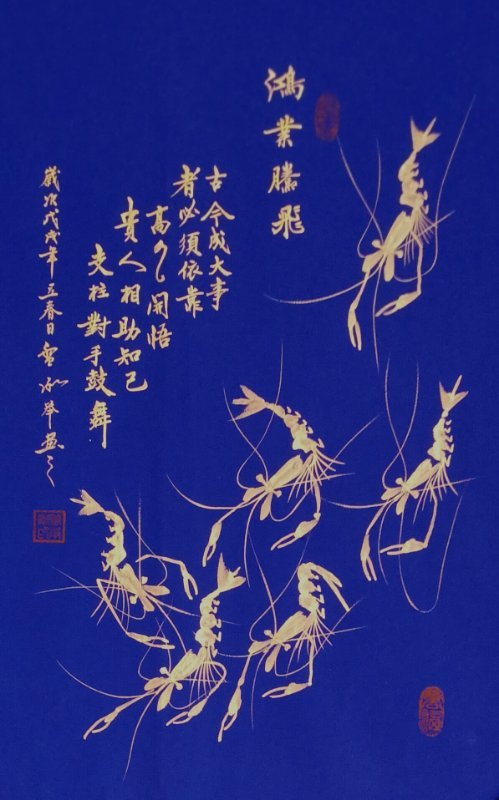 鴻業騰飛
古今成大事
者必須依靠
高人開悟
貴人相助知己
支拄對手鼓舞
歲次戊戌年五春日雪